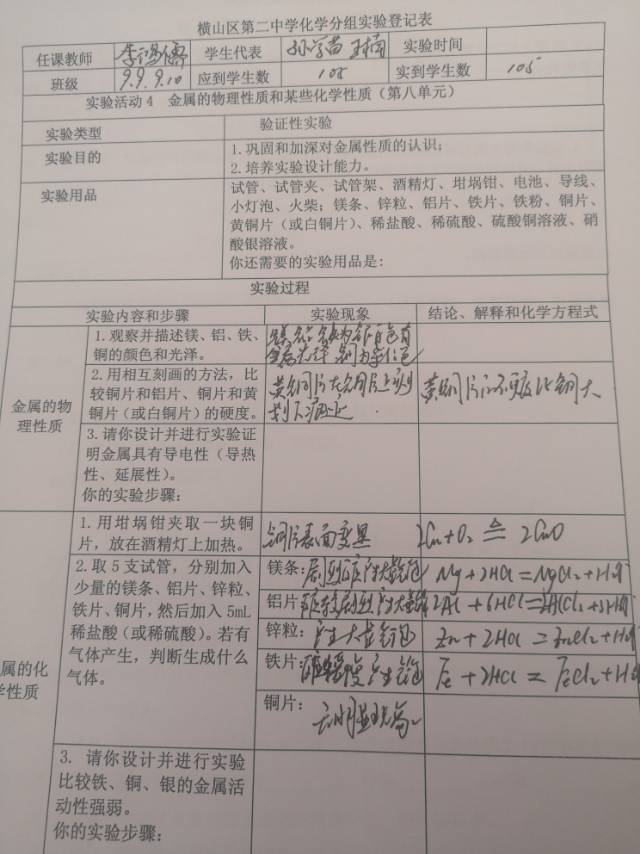 横山区第二中学化学分组实验登记表
任课教师 学生代表 实验时间
班级 9.9. 9.10 应到学生数 105 实到学生数 105
实验活动4 金属的物理性质和某些化学性质（第八单元）
实验类型 验证性实验
实验目的
1.巩固和加深对金属性质的认识；
2.培养实验设计能力。
实验用品
试管、试管夹、试管架、酒精灯、坩埚钳、电池、导线、
小灯泡、火柴；镁条、锌粒、铝片、铁片、铁粉、铜片、
黄铜片（或白铜片）、稀盐酸、稀硫酸、硫酸铜溶液、硝
酸银溶液。
你还需要的实验用品是：
实验过程
实验内容和步骤 实验现象 结论、解释和化学方程式
金属的物
理性质
1.观察并描述镁、铝、铁、
铜的颜色和光泽。
2.用相互刻画的方法，比
较铜片和铝片、铜片和黄
铜片（或白铜片）的硬度。
黄铜片在铜片上
划下痕迹
黄铜片的硬度比铜大
3.请你设计并进行实验证
明金属具有导电性（导热
性、延展性）。
你的实验步骤：
属的化
学性质
1.用坩埚钳夹取一块铜
片，放在酒精灯上加热。
铜片表面变黑
2Cu+O₂ ≜ 2CuO
2.取5支试管，分别加入
少量的镁条、铝片、锌粒、
铁片、铜片，然后加入5mL
稀盐酸（或稀硫酸）。若有
气体产生，判断生成什么
气体。
镁条： Mg+2HCl=MgCl₂+H₂↑
铝片 2Al+6HCl=2AlCl₃+3H₂↑
锌粒：产生大量气泡 Zn+2HCl=ZnCl₂+H₂↑
铁片： 产生气泡 Fe+2HCl=FeCl₂+H₂↑
铜片：
无明显现象
3. 请你设计并进行实验
比较铁、铜、银的金属活
动性强弱。
你的实验步骤：